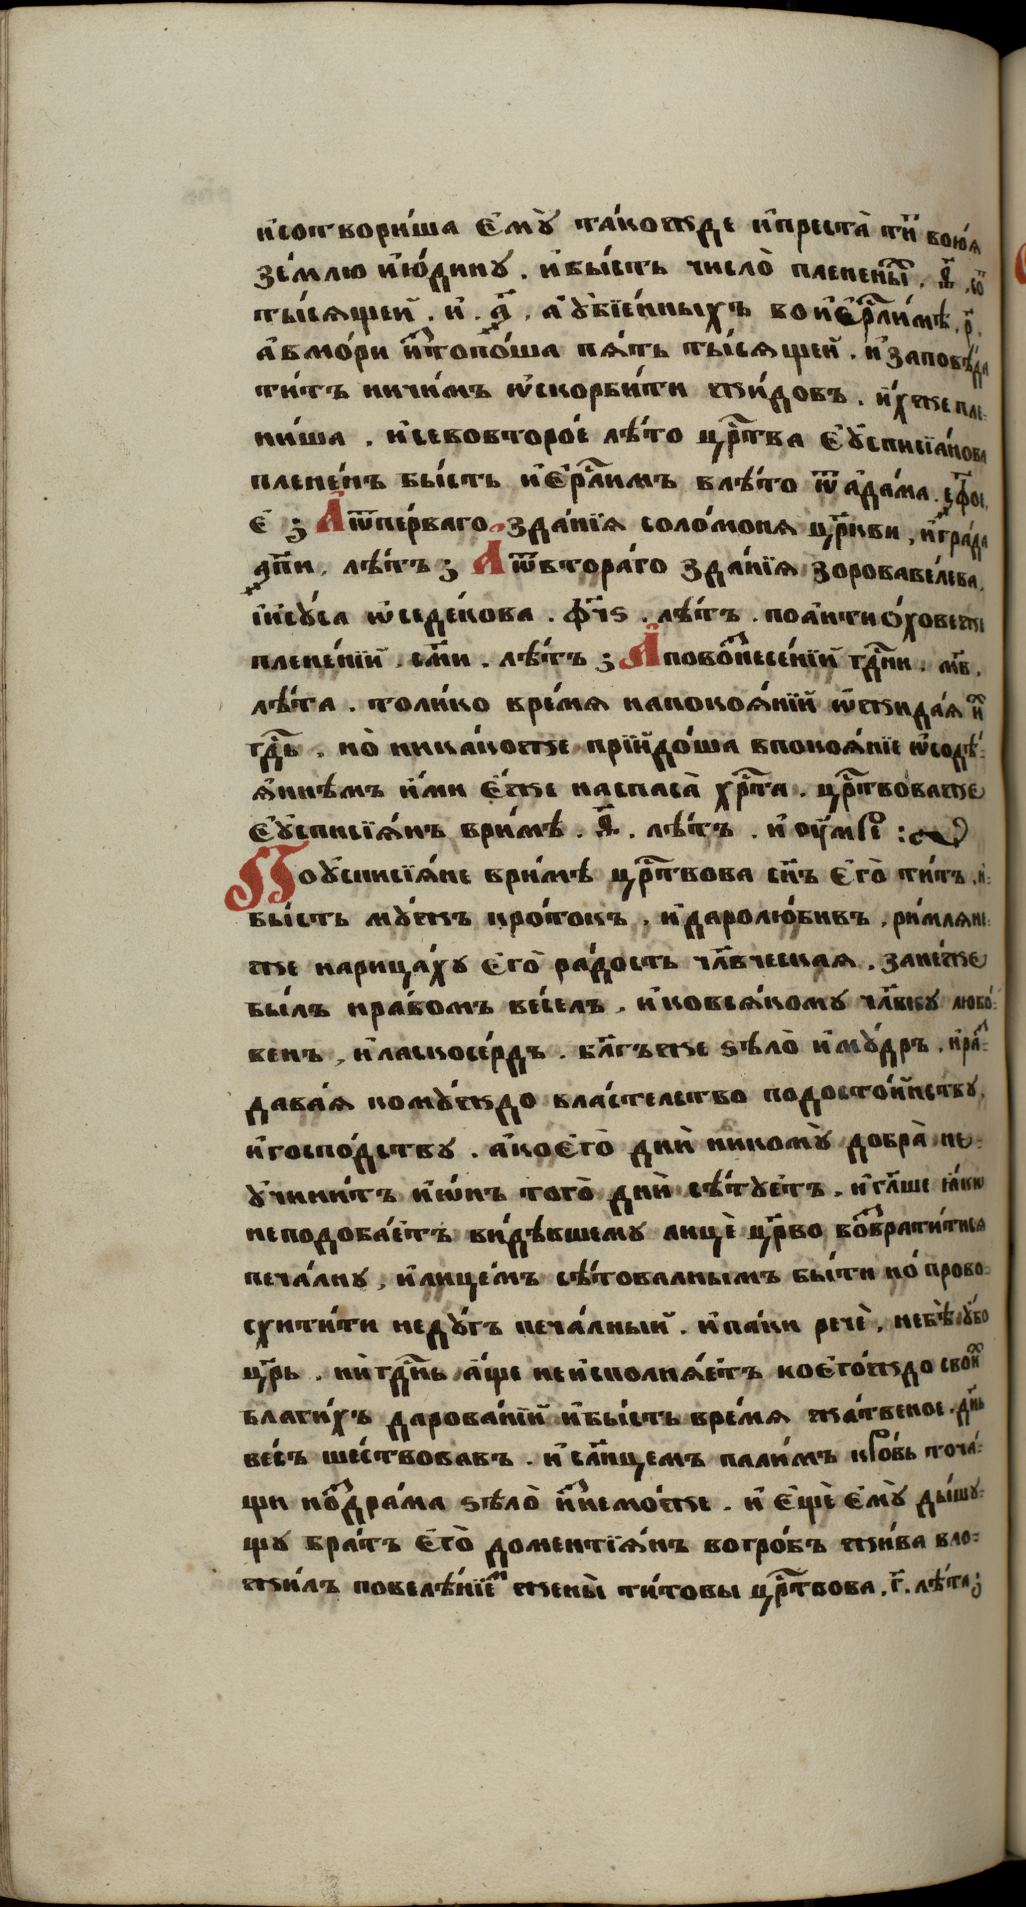 и҆сотвори́ша є҆мꙋ̀ та́кожде и҆преста̀ ти́т вою́ѧ
зе́млю и҆ю҆́динꙋ . и҆бы́сть число̀ плененⷩ҇ы . ꙗ҃ .
ты́сѧщей . и҆ . а҃ . а҆ᲂу҆бїе́нныхъ во и҆єрⷭ҇ли́мѣ . р҃ .
а҆вмо́ри и҆стопо́ша пѧ́ть ты́сѧщей . и҆заповѣ́да
ти́тъ ничи́мъ ѡ҆скорби́ти жи́довъ . и҆́хже пле
ни́ша . и҆севовторо́е лѣ́то црⷭ҇тва є҆ѵсписїа́нова
плене́нъ бы́сть и҆єрⷭ҇ли́мъ влѣ́то ѿ а҆да́ма . ҂єф҃ое .
є҆ ; А҆ ѿпе́рваго зда́нїѧ соло́монѧ цр҃кви , и҆гра́да
҂ап҃и , лѣ́тъ ; А҆ ѿвтора́го зда́нїѧ зороваве́лева .
і҆исꙋ́са ѡ҆седе́кова . ф҃іѕ . лѣ́тъ . поа҆нтиѻ́ховеже
плене́нїи . см҃и . лѣ́тъ ; А҆ повоⷥ҇несе́нїи гдⷭ҇ни . м҃в .
лѣ́та . толи́ко вре́мѧ напокоѧ́нїй ѡ҆жида́ѧ иⷯ
гдⷭ҇ь . но̀ ника́коже прїидо́ша впокоѧ́нїе ѡ҆содѣ́
ѧннѣмъ и҆́ми є҆́же наспаса̀ хрⷭ҇та̀ . црⷭ҇твоваже
є҆ѵсписїѧ́нъ ври́мѣ . ꙗ҃ . лѣ́тъ . и҆ ᲂу҆́мре :
По ᲂу҆́списїѧне ври́мѣ црⷭ҇твова сн҃ъ є҆го̀ ти́тъ , и҆
бы́сть мꙋ́жъ кро́токъ , и҆даролю́бивъ , ри́млѧне
же нарица́хꙋ є҆го̀ ра́дость чл҃вческаѧ . зане́же
бы́лъ нра́вомъ ве́селъ , и҆ковсѧ́комꙋ чл҃вкꙋ любо́
венъ , и҆ласкосе́рдъ . бл҃гъже ѕѣло̀ и҆мꙋ́дръ , и҆раⷥ
дава́ѧ комꙋ́ждо вла́стельство подосто́инствꙋ ,
и҆госпо́дствꙋ . а҆коє҆го̀ дни́ никомꙋ̀ добра̀ не
ᲂу҆чини́тъ и҆ѡ́нъ того̀ дни́ сѣ́тꙋетъ . и҆гл҃ше ꙗ҆́кѡ
неподоба́етъ ви́дѣвшемꙋ лицѐ цр҃во воⷥ҇врати́тисѧ
печа́лнꙋ , и҆лице́мъ сѣ́товалнымъ бы́ти но́ прово
схити́ти недꙋ́гъ печа́лный . и҆па́ки речѐ , небѣ ᲂу҆́бо
цр҃ь . нѝ гдⷭ҇нь а҆́ще неисполнѧ́етъ коєго́ждо своиⷯ
благи́хъ дарова́нїй и҆бы́сть вре́мѧ жа́твеное . дн҃ь
ве́съ ше́ствовавъ . и҆ сл҃нцемъ пали́мъ кро́вь точа́
щи ноⷥ҇дра́ма ѕѣло̀ и҆ⷥнемо́же . и҆ є҆щѐ є҆мꙋ̀ ды́шꙋ
щꙋ бра́тъ є҆го̀ доментїѧ́нъ вогро́бъ жи́ва вло
жи́лъ повелѣ́нїеⷨ жены̀ ти́товы црⷭ҇твова . г҃ . лѣ́та ;